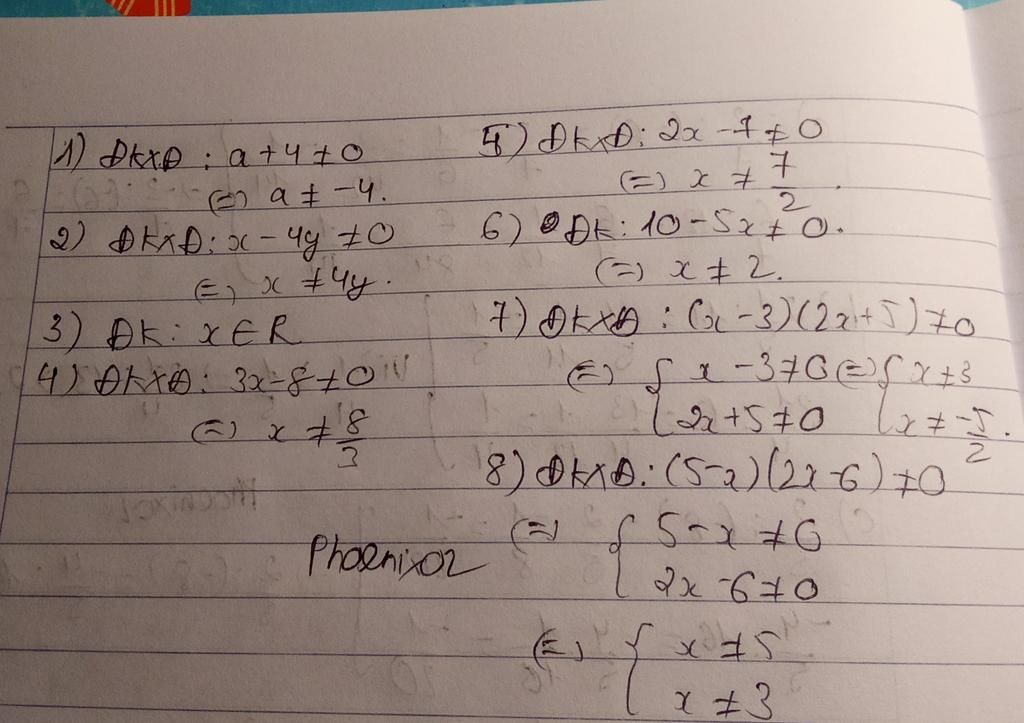 1) ĐKXĐ : a + 4 ≠ 0
⇔ a ≠ -4.
2) ĐKXĐ: x - 4y ≠ 0
⇔ x ≠ 4y.
3) ĐK: x ∈ R
4) ĐKXĐ: 3x - 8 ≠ 0
⇔ x ≠ 8/3
5) ĐKXĐ: 2x - 7 ≠ 0
⇔ x ≠ 7/2.
6) ĐK: 10 - 5x ≠ 0.
⇔ x ≠ 2.
7) ĐKXĐ : (x - 3)(2x + 5) ≠ 0
⇔ { x - 3 ≠ 0 ⇔ { x ≠ 3
2x + 5 ≠ 0 x ≠ -5/2.
8) ĐKXĐ: (5 - x)(2x - 6) ≠ 0
⇔ { 5 - x ≠ 0
2x - 6 ≠ 0
⇔ { x ≠ 5
x ≠ 3
Phoenix02